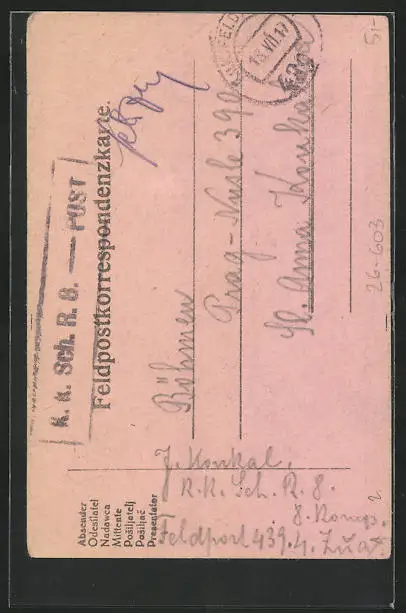 K. k. Sch. R. 8. — POST
Feldpostkorrespondenzkarte.
FELD
18 VII 17
Böhmen
Prag-Nusle 390
Sl. Anna
Absender
Odesílatel
Nadawca
Mittente
Pošiljatelj
Pošiljač
J. Koukal,
K. K. Sch. R. 8.
8. Komp.
Feldpost 439. 4. Zug
26-603
51-